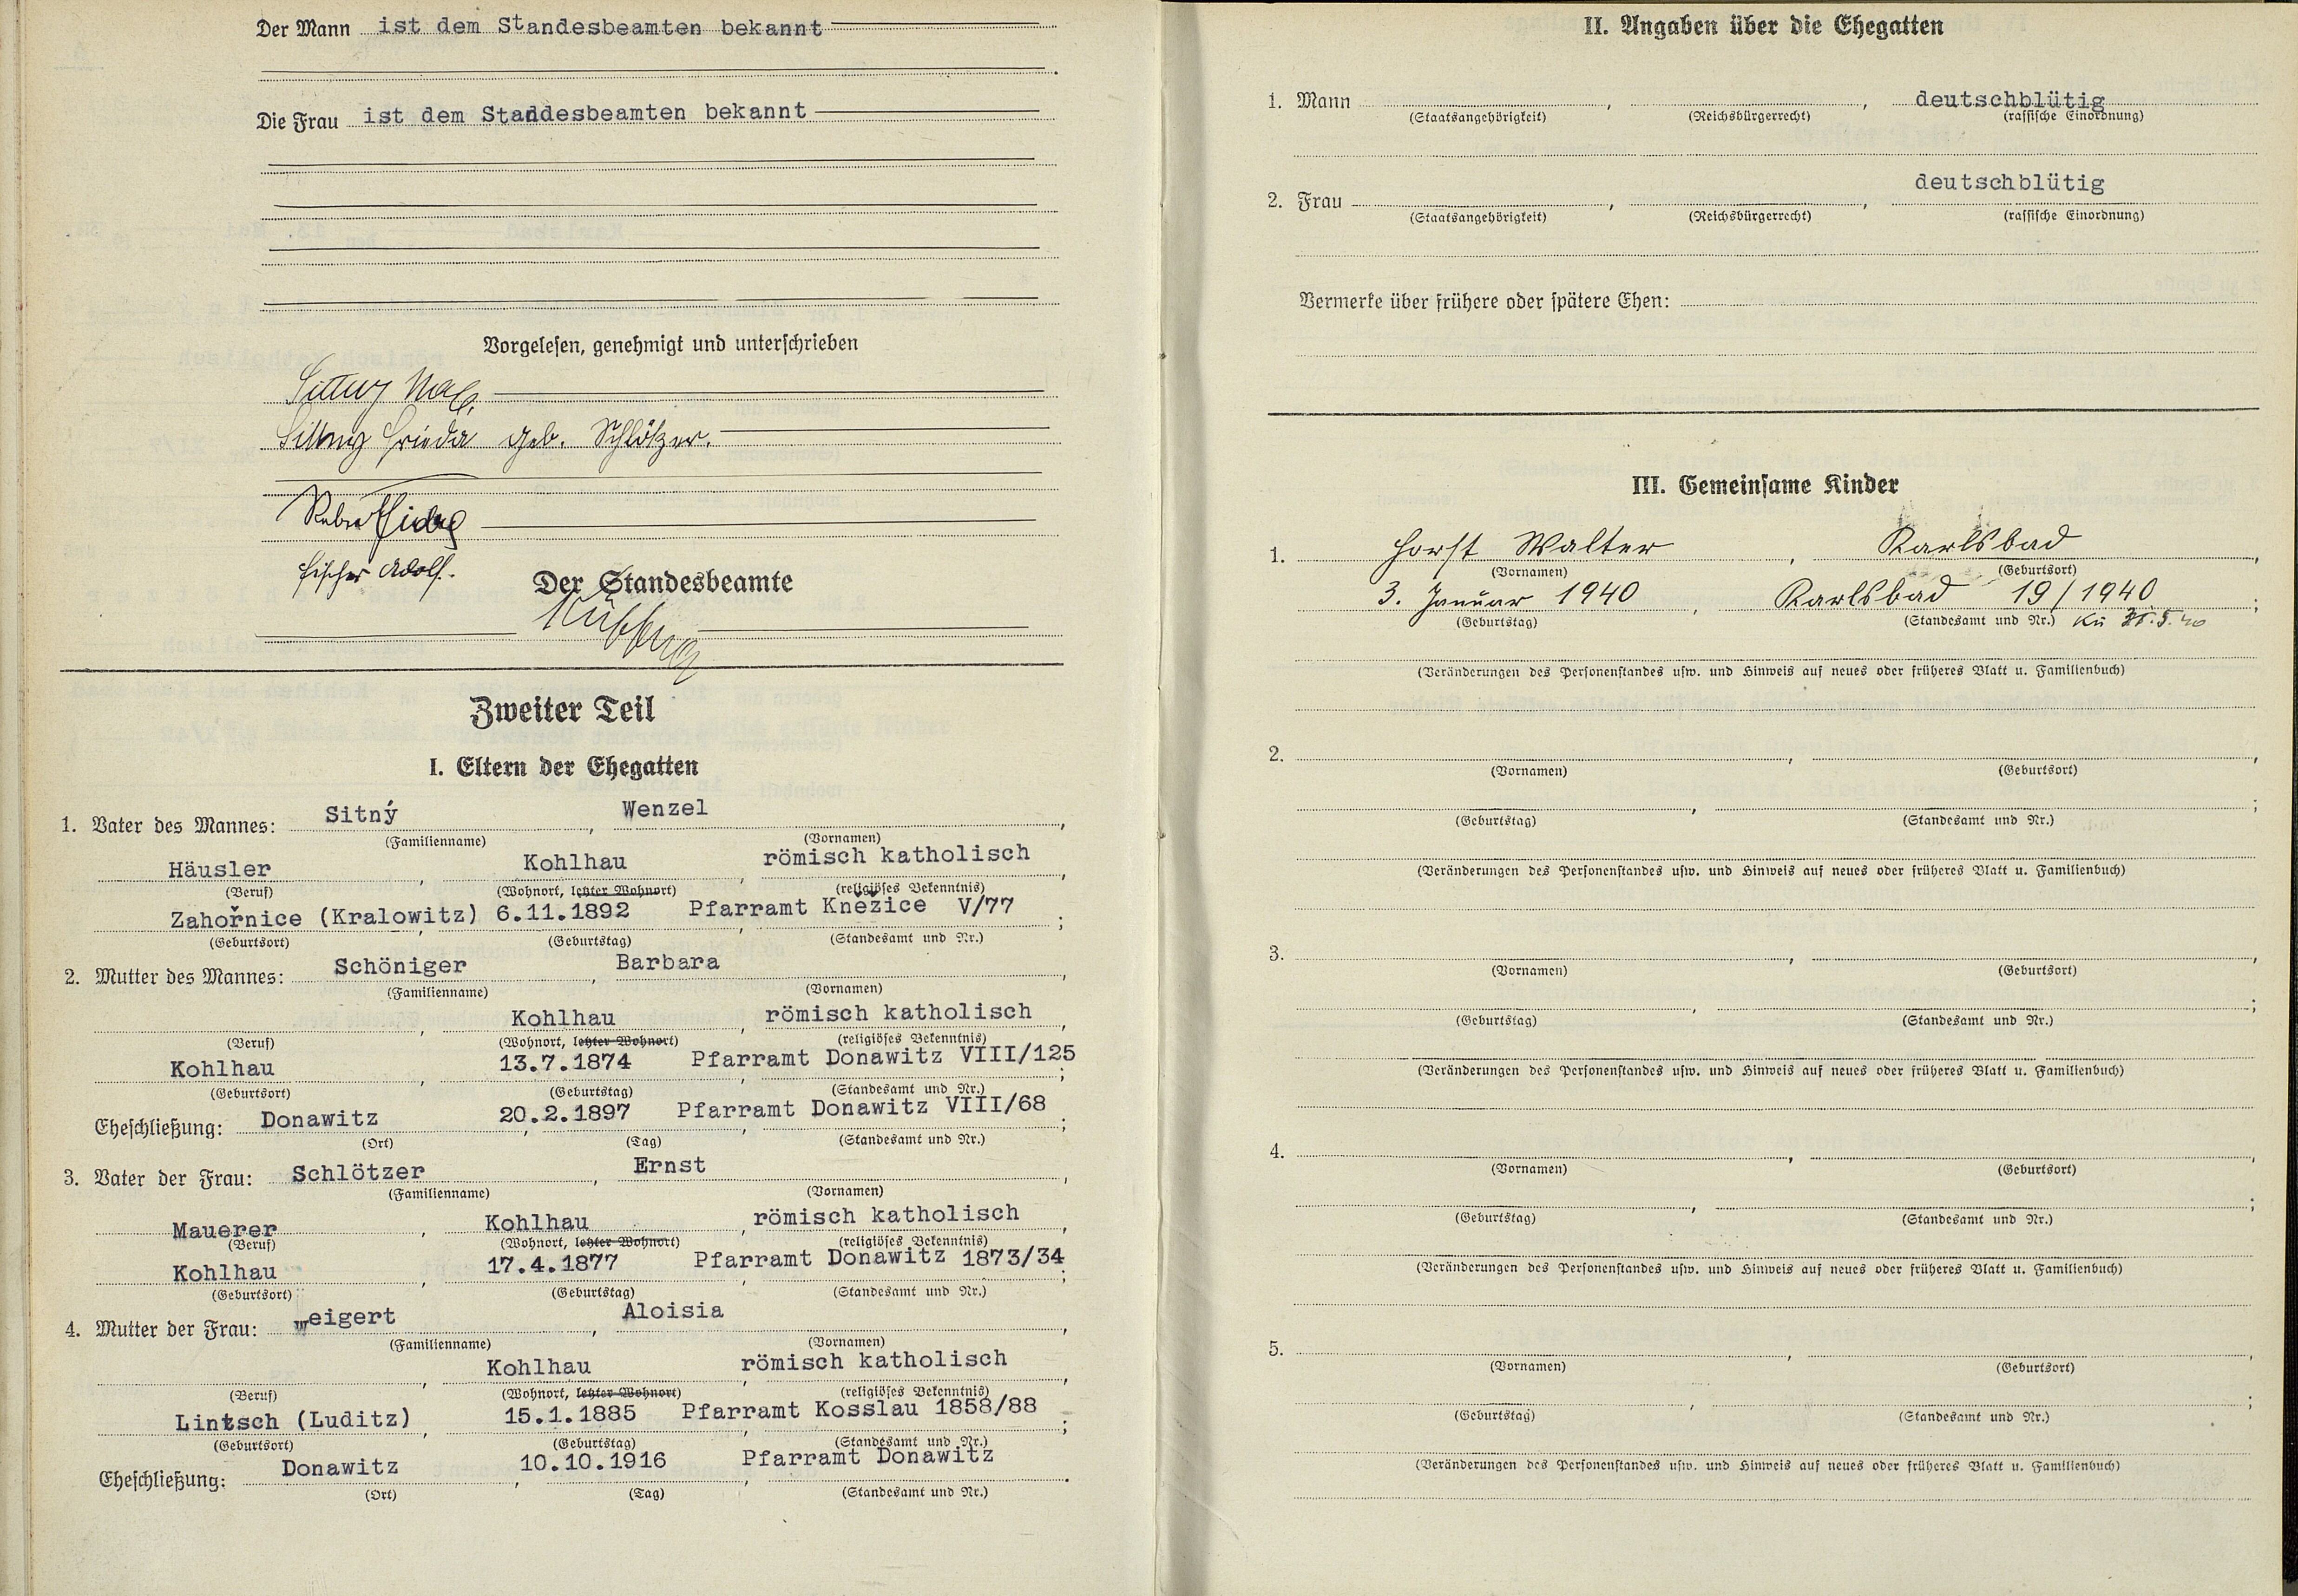 Der Mann ist dem Standesbeamten bekannt
Die Frau ist dem Standesbeamten bekannt
Vorgelesen, genehmigt und unterschrieben
Sittny
Sittny Frieda geb. Schlötzer.
Fischer Adolf.
Der Standesbeamte
Zweiter Teil
I. Eltern der Ehegatten
1. Vater des Mannes: Sitný, Wenzel,
(Familienname) (Vornamen)
Häusler, Kohlhau, römisch katholisch,
(Beruf) (Wohnort, letzter Wohnort) (religiöses Bekenntnis)
Zahořnice (Kralowitz), 6.11.1892, Pfarramt Knežice V/77;
(Geburtsort) (Geburtstag) (Standesamt und Nr.)
2. Mutter des Mannes: Schöniger, Barbara,
(Familienname) (Vornamen)
, Kohlhau, römisch katholisch,
(Beruf) (Wohnort, letzter Wohnort) (religiöses Bekenntnis)
Kohlhau, 13.7.1874, Pfarramt Donawitz VIII/125;
(Geburtsort) (Geburtstag) (Standesamt und Nr.)
Eheschließung: Donawitz, 20.2.1897, Pfarramt Donawitz VIII/68;
(Ort) (Tag) (Standesamt und Nr.)
3. Vater der Frau: Schlötzer, Ernst,
(Familienname) (Vornamen)
Mauerer, Kohlhau, römisch katholisch,
(Beruf) (Wohnort, letzter Wohnort) (religiöses Bekenntnis)
Kohlhau, 17.4.1877, Pfarramt Donawitz 1873/34;
(Geburtsort) (Geburtstag) (Standesamt und Nr.)
4. Mutter der Frau: Weigert, Aloisia,
(Familienname) (Vornamen)
, Kohlhau, römisch katholisch,
(Beruf) (Wohnort, letzter Wohnort) (religiöses Bekenntnis)
Lintsch (Luditz), 15.1.1885, Pfarramt Kosslau 1858/88;
(Geburtsort) (Geburtstag) (Standesamt und Nr.)
Eheschließung: Donawitz, 10.10.1916, Pfarramt Donawitz.
(Ort) (Tag) (Standesamt und Nr.)
II. Angaben über die Ehegatten
1. Mann , , deutschblütig
(Staatsangehörigkeit) (Reichsbürgerrecht) (rassische Einordnung)
2. Frau , , deutschblütig
(Staatsangehörigkeit) (Reichsbürgerrecht) (rassische Einordnung)
Vermerke über frühere oder spätere Ehen:
III. Gemeinsame Kinder
1. Horst Walter, Karlsbad,
(Vornamen) (Geburtsort)
3. Januar 1940, Karlsbad 19/1940;
(Geburtstag) (Standesamt und Nr.)
(Veränderungen des Personenstandes usw. und Hinweis auf neues oder früheres Blatt u. Familienbuch)
2. , ,
(Vornamen) (Geburtsort)
, ;
(Geburtstag) (Standesamt und Nr.)
(Veränderungen des Personenstandes usw. und Hinweis auf neues oder früheres Blatt u. Familienbuch)
3. , ,
(Vornamen) (Geburtsort)
, ;
(Geburtstag) (Standesamt und Nr.)
(Veränderungen des Personenstandes usw. und Hinweis auf neues oder früheres Blatt u. Familienbuch)
4. , ,
(Vornamen) (Geburtsort)
, ;
(Geburtstag) (Standesamt und Nr.)
(Veränderungen des Personenstandes usw. und Hinweis auf neues oder früheres Blatt u. Familienbuch)
5. , ,
(Vornamen) (Geburtsort)
, ;
(Geburtstag) (Standesamt und Nr.)
(Veränderungen des Personenstandes usw. und Hinweis auf neues oder früheres Blatt u. Familienbuch)